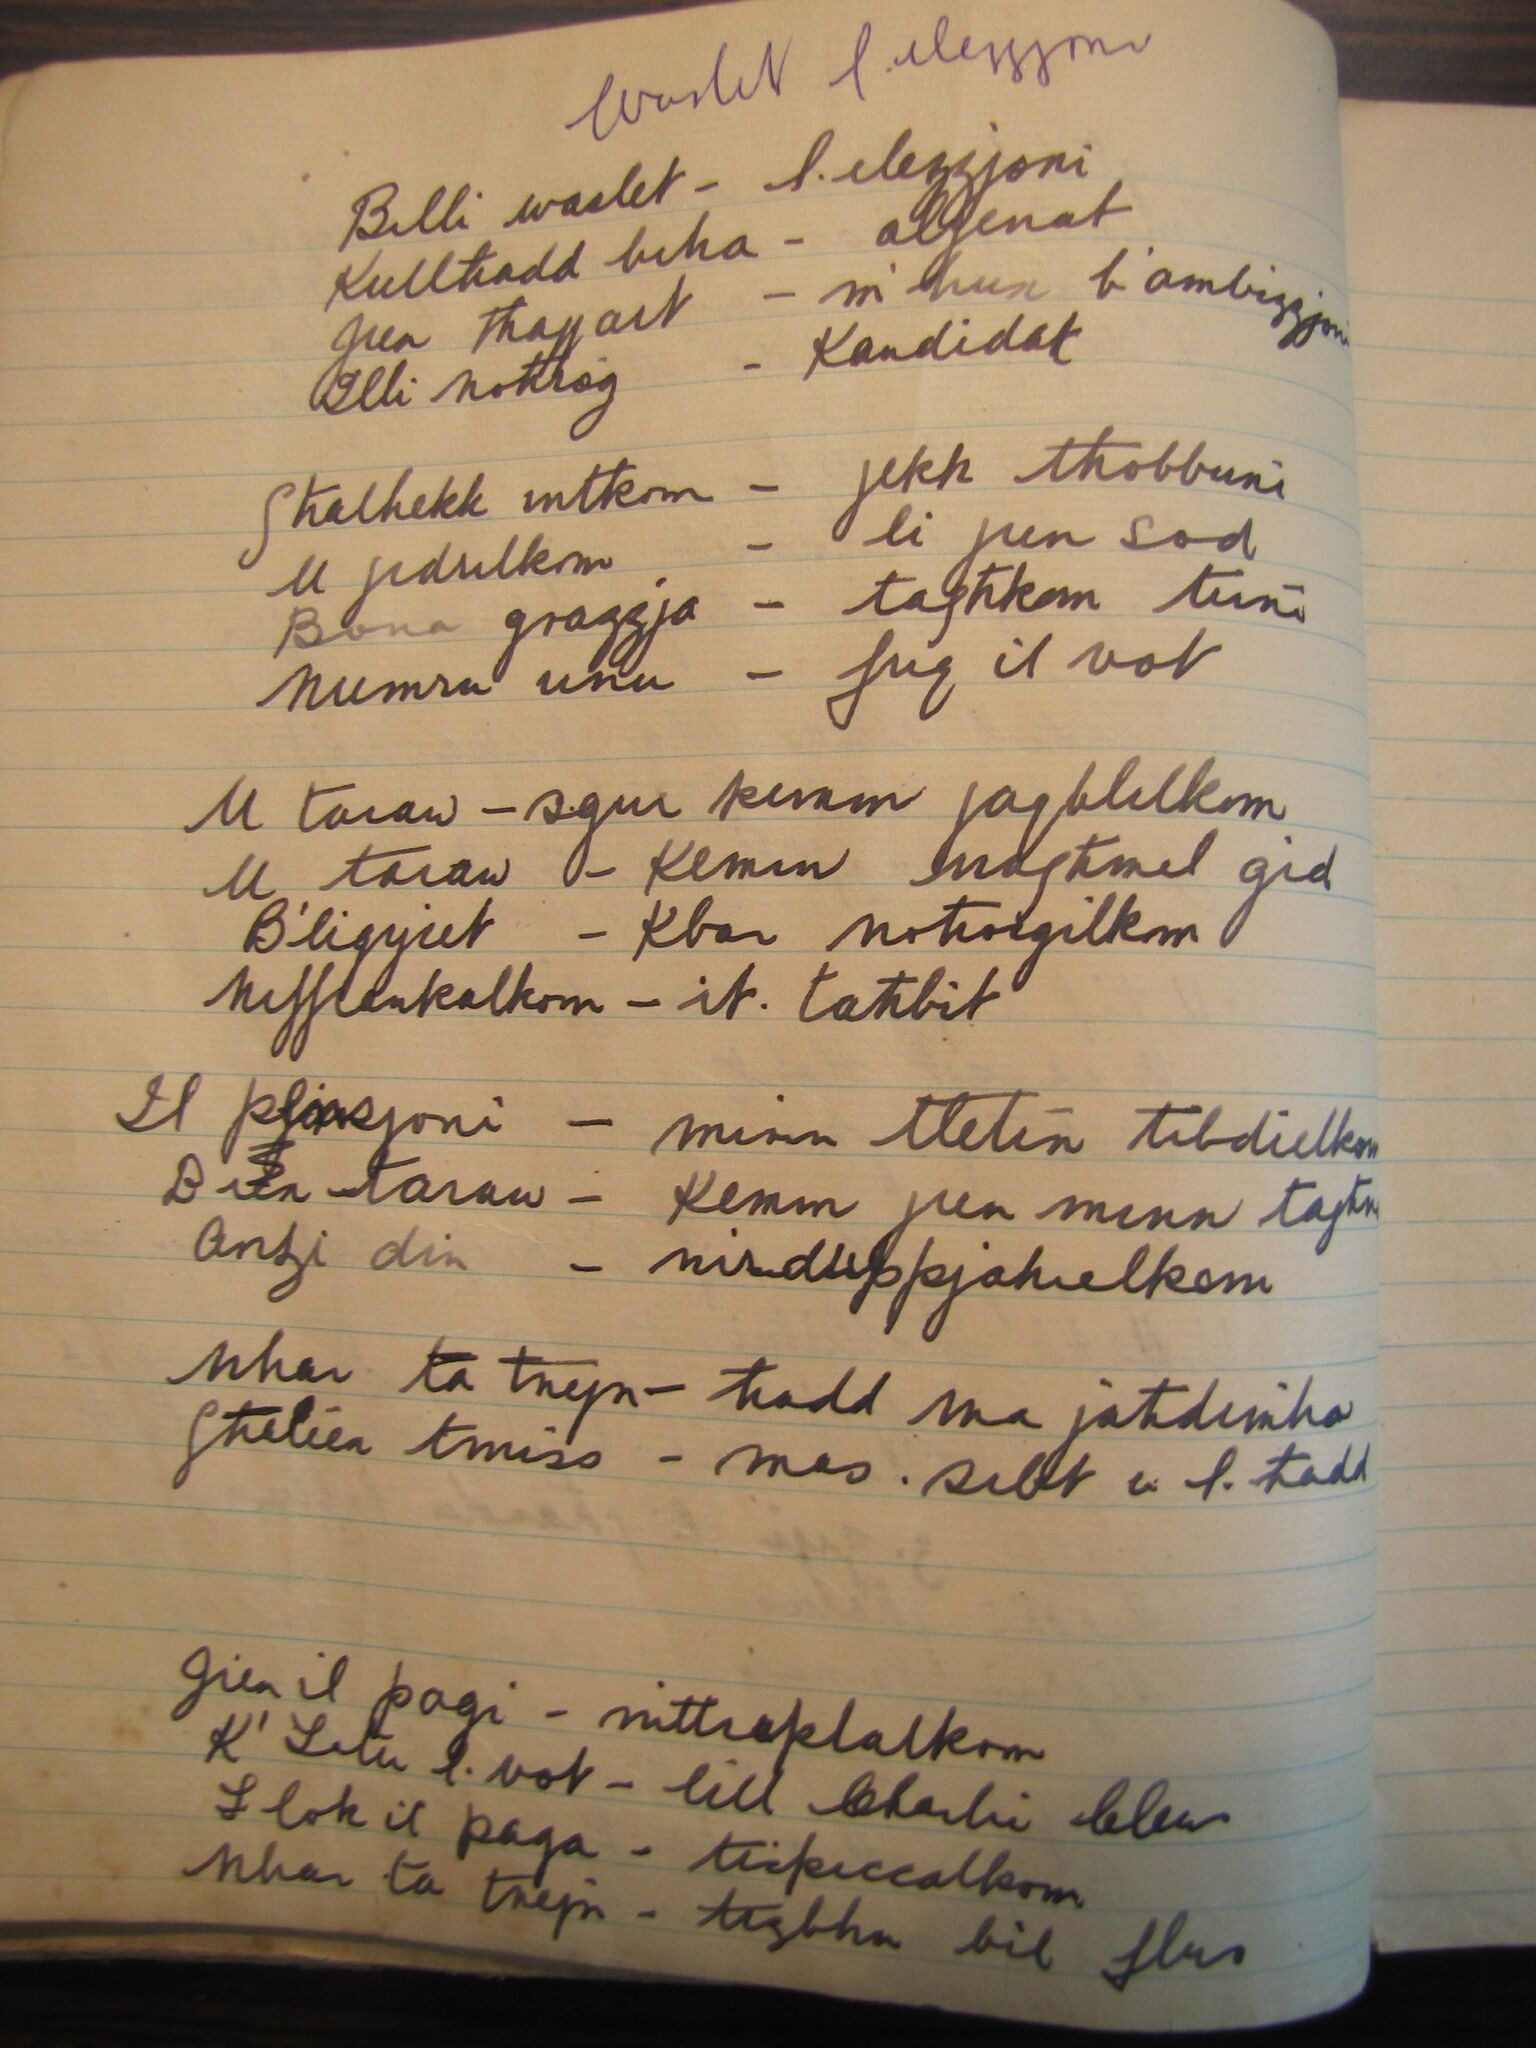 Waslet l. elezzjoni
Billi waslet - l. elezzjoni
Kullhadd biha - aljenat
jien thajjart - m'hux b'ambizzjoni
Illi nohrog - Kandidat
Ghalhekk intkom - jekk thobbuni
U jidrilkom - li jien sod
Bona grazzja - taghkom tuni
Numru unu - fuq il vot
U taraw - sgur kemm jaqblilkom
U taraw - Kemm naghmel gid
B'ligijiet - Kbar nohorgilkom
Niffrankalkom - it. tahbit
Il pinsjoni - minn tletin tibdielkom
Biex taraw - Kemm jien minn tagh
Anzi din - nirduppjahielkom
Nhar ta tnejn - hadd ma jahdimha
Ghaliex tmiss - mas. sibt u l. hadd
Gien il pagi - nittriplalkom
K' Itu l. vot - lill Charli Clews
Ilok il paga - tispiccalkom
Nhar ta tnejn - tizbhu bil flus